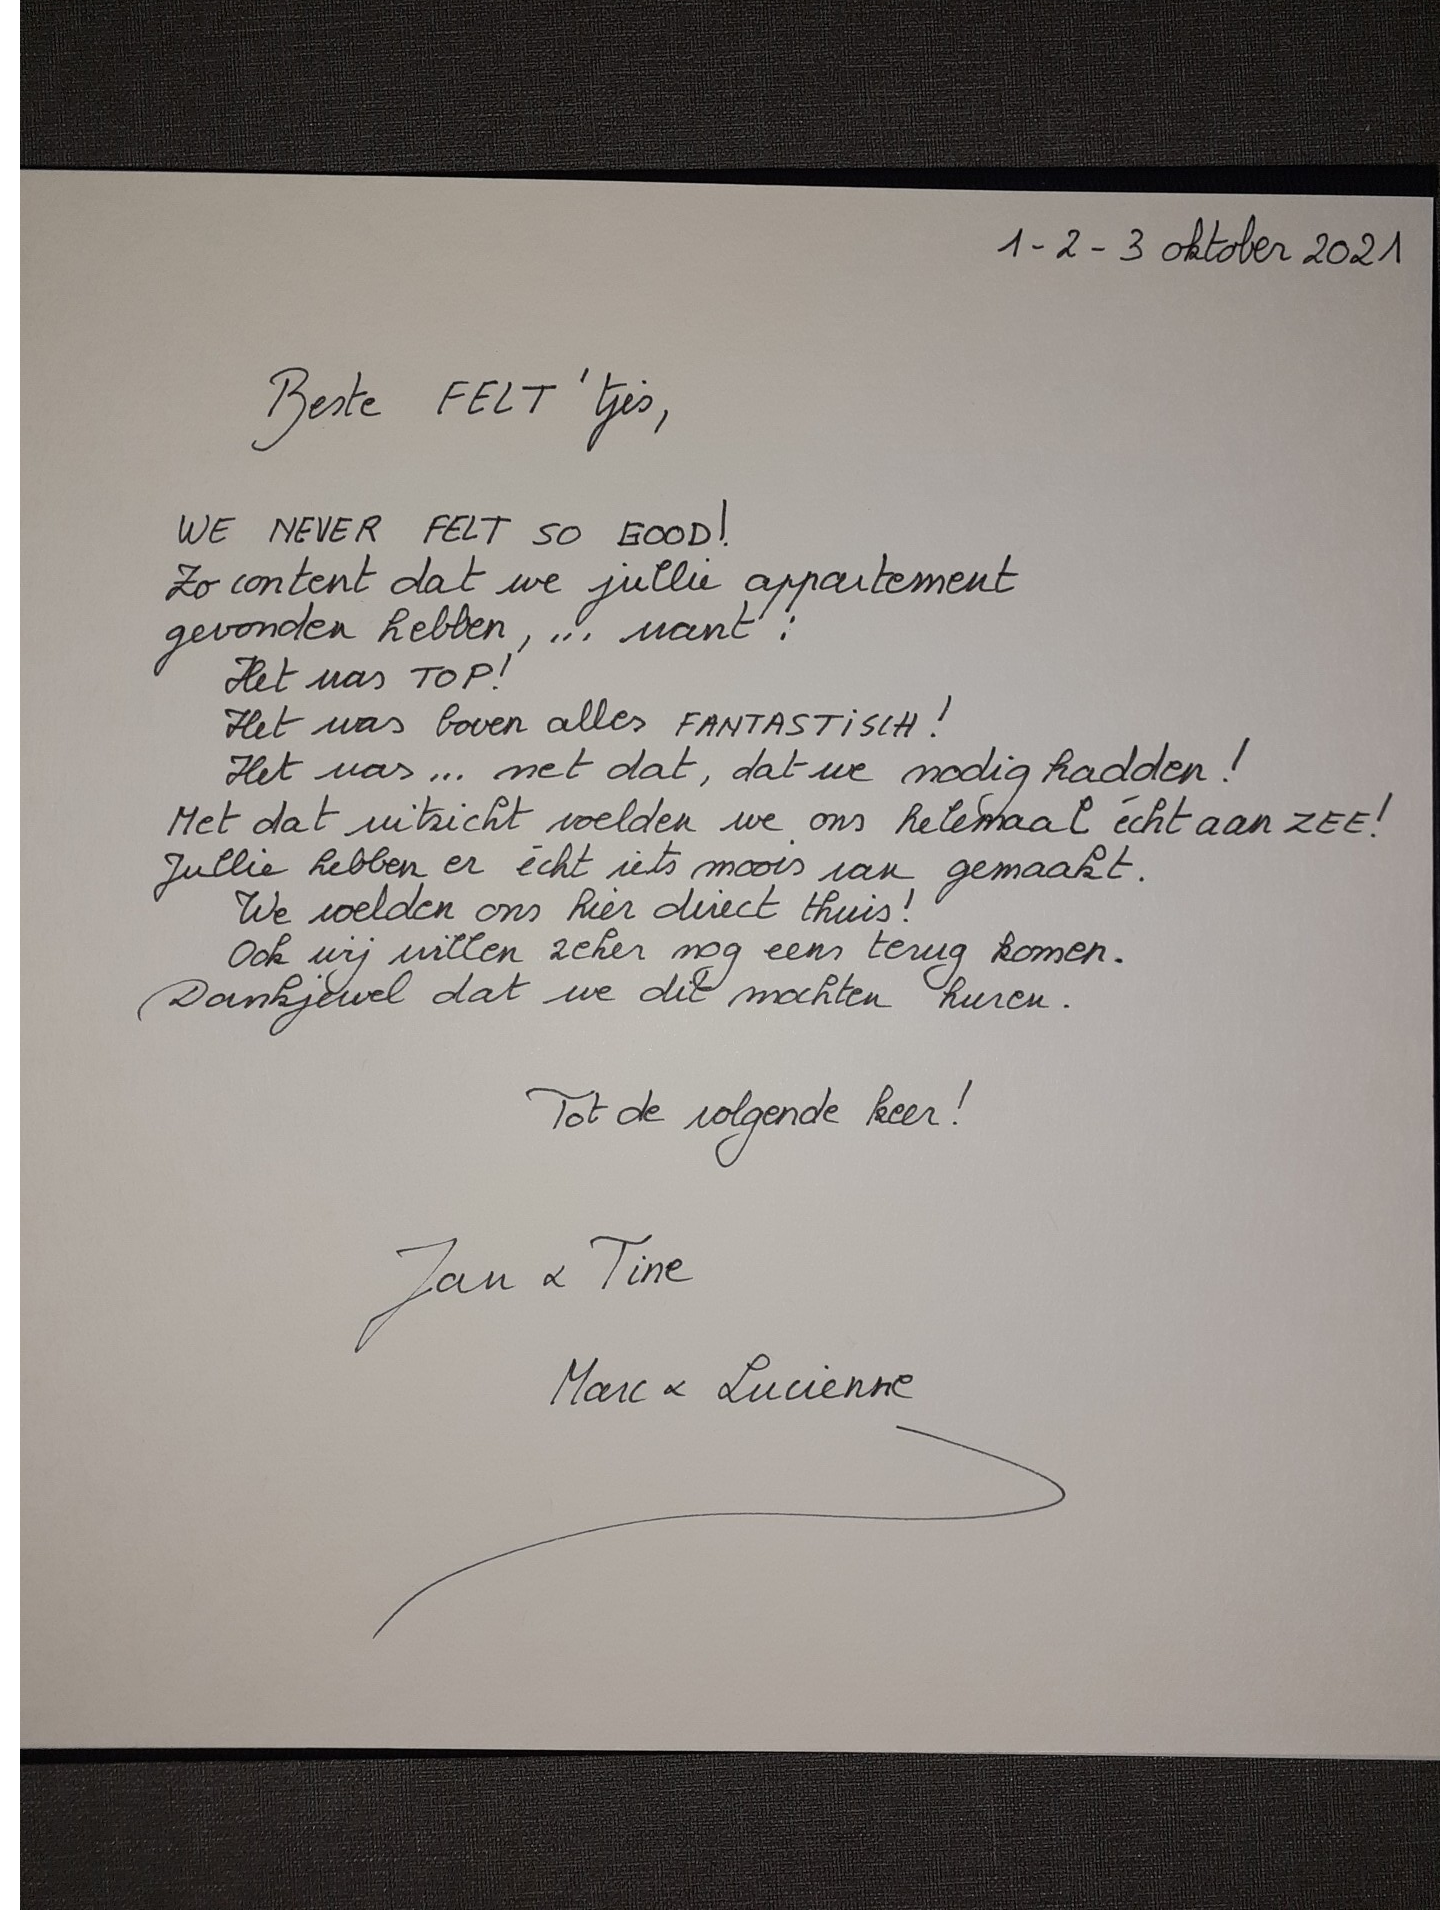 1 - 2 - 3 oktober 2021
Beste FELT'tjes,
WE NEVER FELT SO GOOD!
Zo content dat we jullie appartement
gevonden hebben, ... want :
Het was TOP!
Het was boven alles FANTASTiSCH!
Het was ... net dat, dat we nodig hadden!
Met dat uitzicht voelden we ons helemaal écht aan ZEE!
Jullie hebben er écht iets moois van gemaakt.
We voelden ons hier direct thuis!
Ook wij willen zeker nog eens terug komen.
Dankjewel dat we dit mochten huren.
Tot de volgende keer!
Jan & Tine
Marc & Lucienne